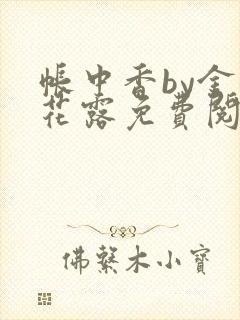 帳中香by金
花露免費閱
佛系木小寶